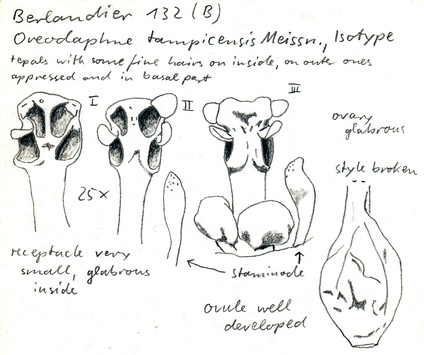 Berlandier 132 (B)
Oreodaphne tampicensis Meissn., Isotype
tepals with some fine hairs on inside, on outer ones
appressed and in basal part
I
II
III
25×
ovary
glabrous
style broken
receptacle very
small, glabrous
inside
staminode
ovule well
developed